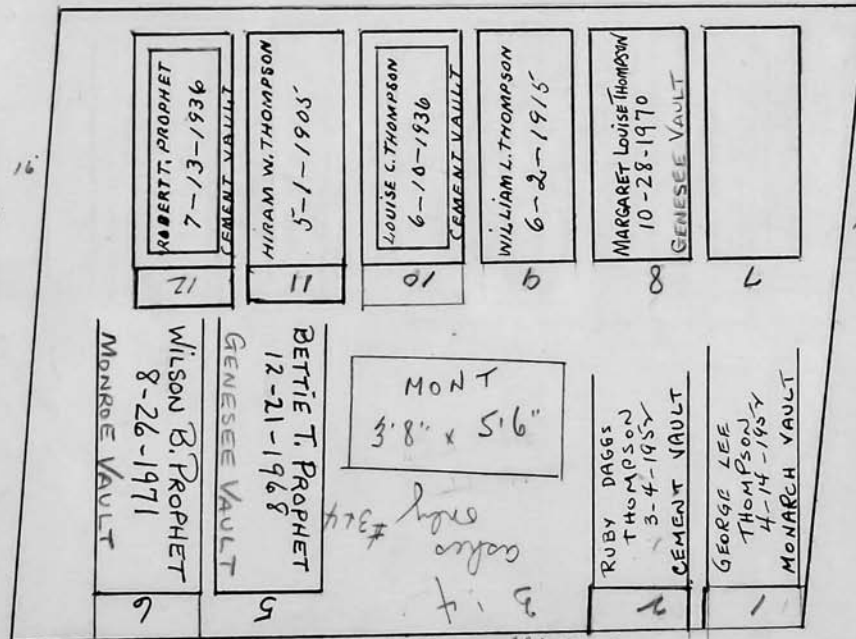 16'
ROBERT T. PROPHET
7-13-1936
CEMENT VAULT
12
HIRAM W. THOMPSON
5-1-1905
11
LOUISE C. THOMPSON
6-10-1936
CEMENT VAULT
10
WILLIAM L. THOMPSON
6-2-1915
9
MARGARET LOUISE THOMPSON
10-28-1970
GENESEE VAULT
8
7
WILSON B. PROPHET
8-26-1971
MONROE VAULT
6
BETTIE T. PROPHET
12-21-1968
GENESEE VAULT
5
MONT
5'6" x 3'8"
3 & 4
ashes
only
#3&4
RUBY DAGGS
THOMPSON
3-4-1952
CEMENT VAULT
2
GEORGE LEE
THOMPSON
4-14-1952
MONARCH VAULT
1